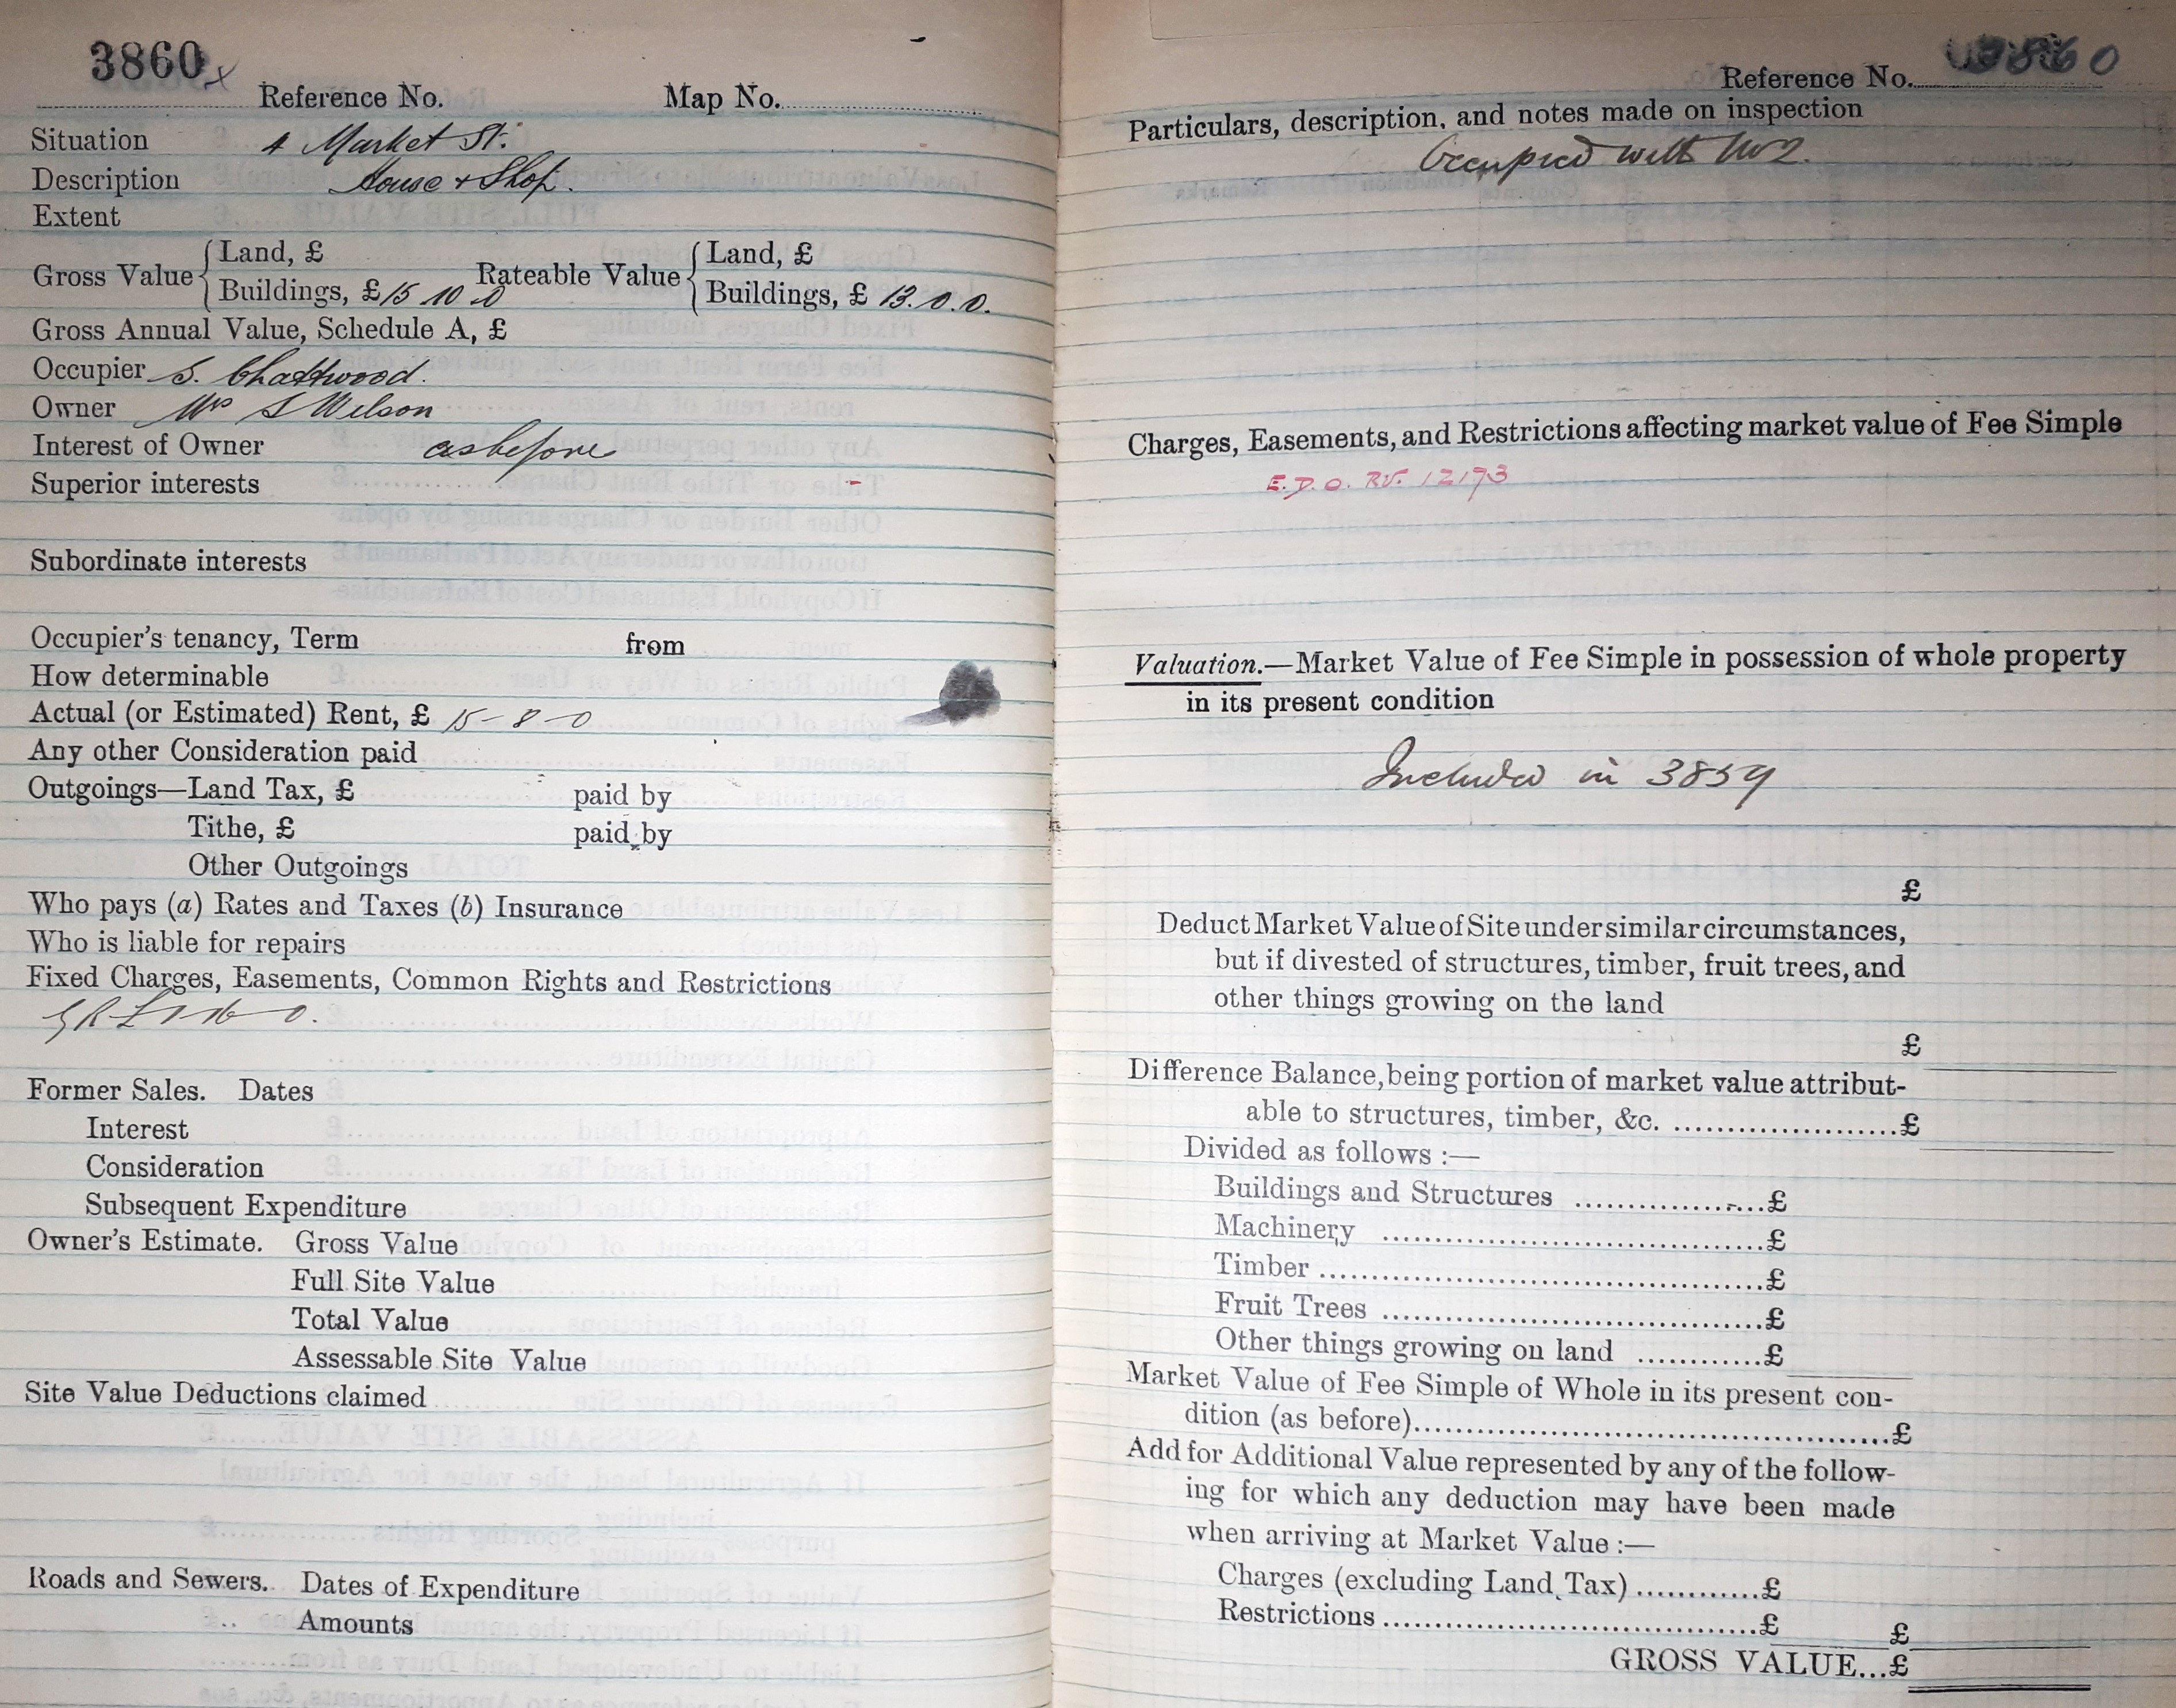 3860
Reference No. Map No.
Situation 4 Market St.
Description House + Shop.
Extent
Gross Value { Land, £ Rateable Value { Land, £
Buildings, £ 15 10 0 Buildings, £ 13. 0. 0.
Gross Annual Value, Schedule A, £
Occupier S. Chattwood.
Owner Mrs S Wilson
Interest of Owner as before
Superior interests -
Subordinate interests
Occupier's tenancy, Term from
How determinable
Actual (or Estimated) Rent, £ 15-8-0
Any other Consideration paid
Outgoings—Land Tax, £ paid by
Tithe, £ paid by
Other Outgoings
Who pays (a) Rates and Taxes (b) Insurance
Who is liable for repairs
Fixed Charges, Easements, Common Rights and Restrictions
GR £1-16-0.
Former Sales. Dates
Interest
Consideration
Subsequent Expenditure
Owner's Estimate. Gross Value
Full Site Value
Total Value
Assessable Site Value
Site Value Deductions claimed
Roads and Sewers. Dates of Expenditure
Amounts
Reference No. 3860
Particulars, description, and notes made on inspection
Occupied with No 2.
Charges, Easements, and Restrictions affecting market value of Fee Simple
E.D.O. RV. 12173
Valuation.—Market Value of Fee Simple in possession of whole property
in its present condition
Included in 3859
£
Deduct Market Value of Site under similar circumstances,
but if divested of structures, timber, fruit trees, and
other things growing on the land
£
Difference Balance, being portion of market value attribut-
able to structures, timber, &c. ....................£
Divided as follows :—
Buildings and Structures ....................£
Machinery ....................£
Timber ....................£
Fruit Trees ....................£
Other things growing on land ............£
Market Value of Fee Simple of Whole in its present con-
dition (as before)....................£
Add for Additional Value represented by any of the follow-
ing for which any deduction may have been made
when arriving at Market Value :—
Charges (excluding Land Tax)............£
Restrictions....................£ £
GROSS VALUE...£